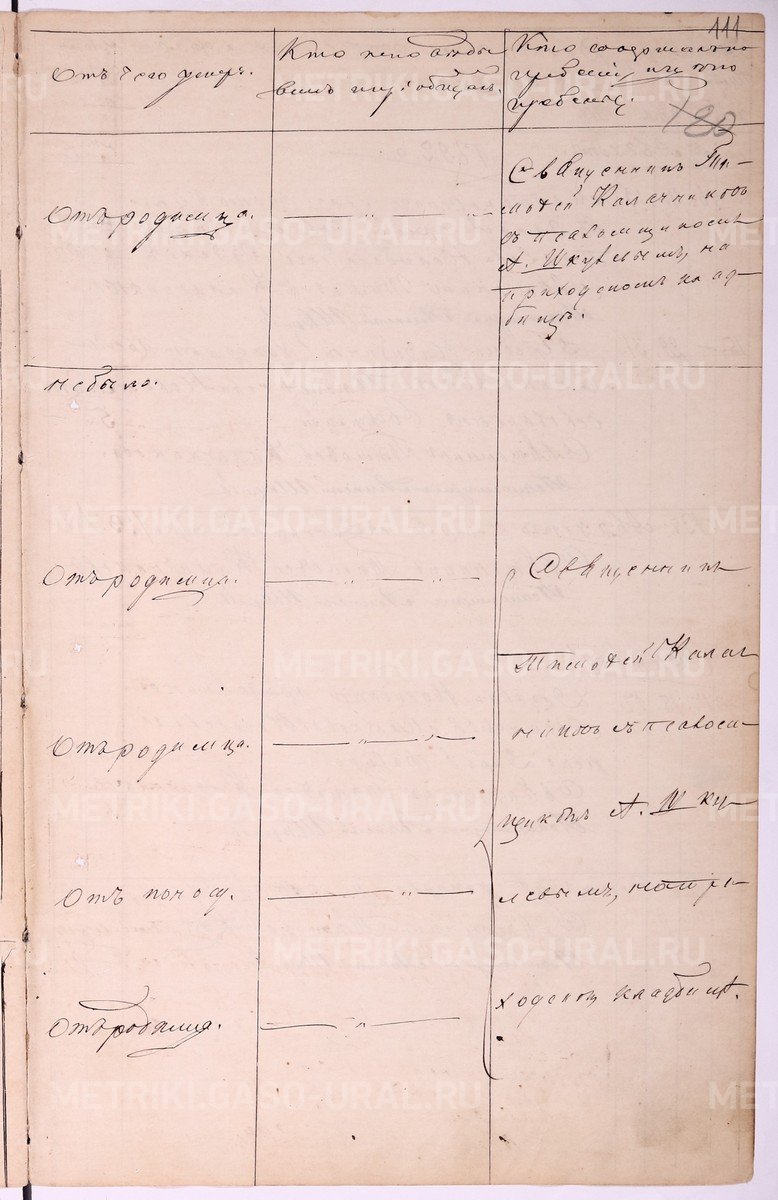 111
180
Отъ чего умеръ.
Кто исповѣды
валъ и пріобщалъ.
Кто совершалъ по
гребеніе и гдѣ по
гребены.
Отъ родимца.
Священникъ Ти-
моѳей Калачниковъ
съ псаломщикомъ
А. Шкулевымъ, на
приходскомъ клад
бищѣ.
не было.
Отъ родимца.
Священникъ
Отъ родимца.
Тимоѳей Калач
никовъ съ псалом
щикомъ А. Шку
Отъ поноса.
левымъ, на при
Отъ родимца.
ходскомъ кладбищѣ.
METRIKI.GASO-URAL.RU